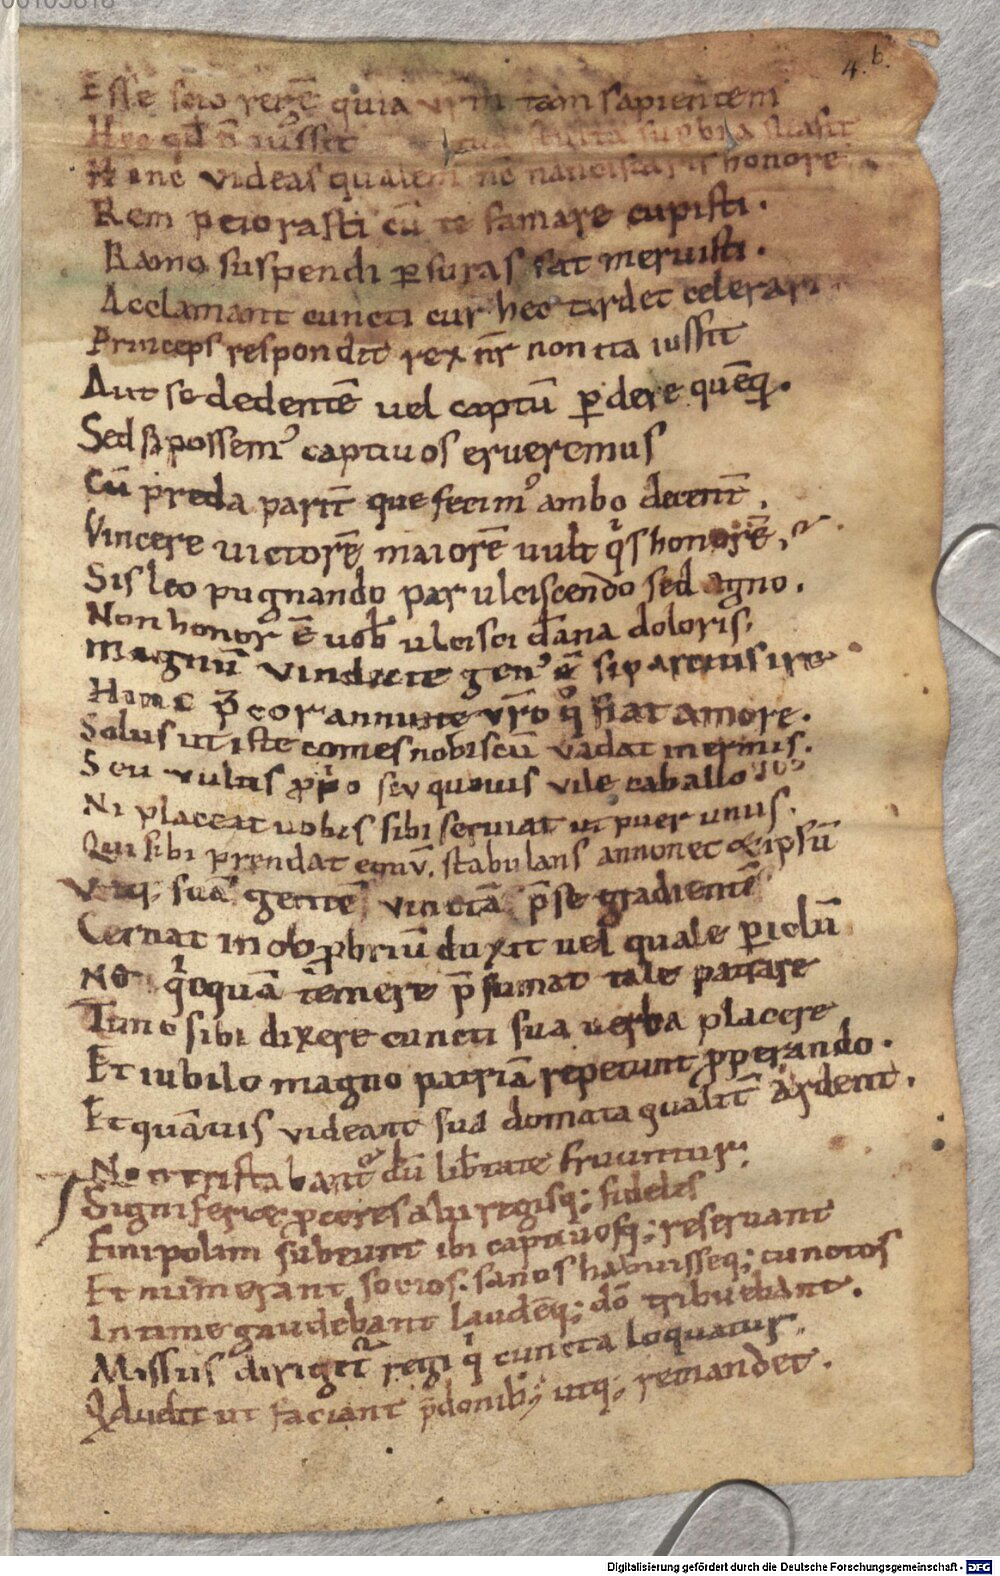 4.b.
Esse scio rerē quia vrm̄ tam sapientem
Hec qd̄ n̄ iussit tua stulta supbia suasit
Nunc videas qualem nc̄ nanciscaris honorē
Rem peiorasti cū te famare cupisti.
Ramo suspendi p̱ suras sat meruisti.
Acclamant cuncti cur hec tardet celerari
Princeps respondit rex nr̄ non ita iussit
Aut se dedentē uel captū p̱dere quēq;.
Sed si possem᾽ captiuos erueremus
Cū preda parit̄ que fecim᾽ ambo decent̄.
Vincere uictorē maiorē uult qͥs honorē,
Sis leo pugnando par ulciscendo sed agno.
Non honor ē uob̄ ulcisci dāna doloris,
Magnū vindicte gen᾽ ē si parcitis ire
Hanc p̄cor annuite vr̄o qͦ fiat amore.
Solus ut iste comes nobiscū vadat inermis.
Seu vultis ꝓpͥo seu quouis vile caballo
Ni placeat uobis sibi seruiat ut puer unus.
Qui sibi prendat equū, stabulans annonet & ipsū
Vtq; suā gentē vinctā p̄ se gradientē
Cernat in obꝓbriū duxit uel quale p̱iclū
Ne qͥcquā temere p̄sumat tale patrare
Tunc sibi dixere cuncti sua uerba placere
Et iubilo magno patriā repetunt ꝓperando.
Et quāuis videant sua domata qualit̄ ardent.
Non tristabant᾽ dū lib̄tate fruuntur;
Signiferiq; ꝓceres alii regisq; fideles
Emipolim subeunt ibi captiuosq; reseruant
Et numerant socios. sanos habuisseq; cunctos
Intime gaudebant laudēq; dō tribuebant.
Missus dirigit᾽ regi qͥ cuncta loquatur.
Qd̄ uelit ut faciant p̄donib; utq; remandet.
Digitalisierung gefördert durch die Deutsche Forschungsgemeinschaft - DFG